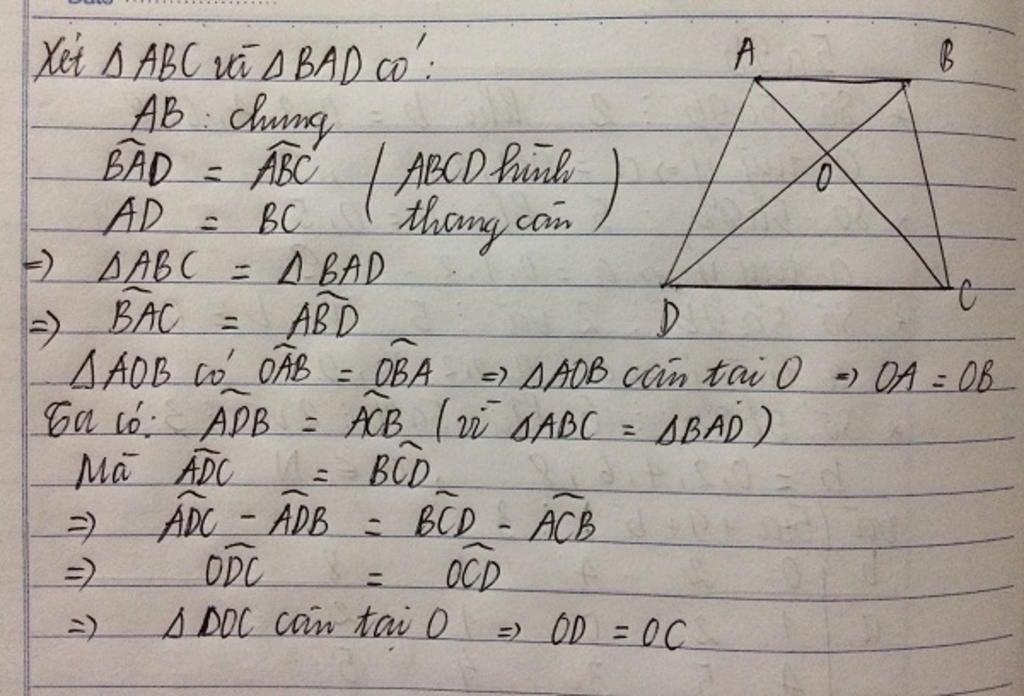 Date
Xét ΔABC và ΔBAD có:
AB: chung
B̂AD = ÂBC (ABCD hình
AD = BC thang cân)
=> ΔABC = ΔBAD
=> B̂AC = ÂBD
ΔAOB có ÔAB = ÔBA => ΔAOB cân tại O => OA = OB
Ta có: ÂDB = ÂCB (vì ΔABC = ΔBAD)
Mà ÂDC = B̂CD
=> ÂDC - ÂDB = B̂CD - ÂCB
=> ÔDC = ÔCD
=> ΔDOC cân tại O => OD = OC
A B
O
D C